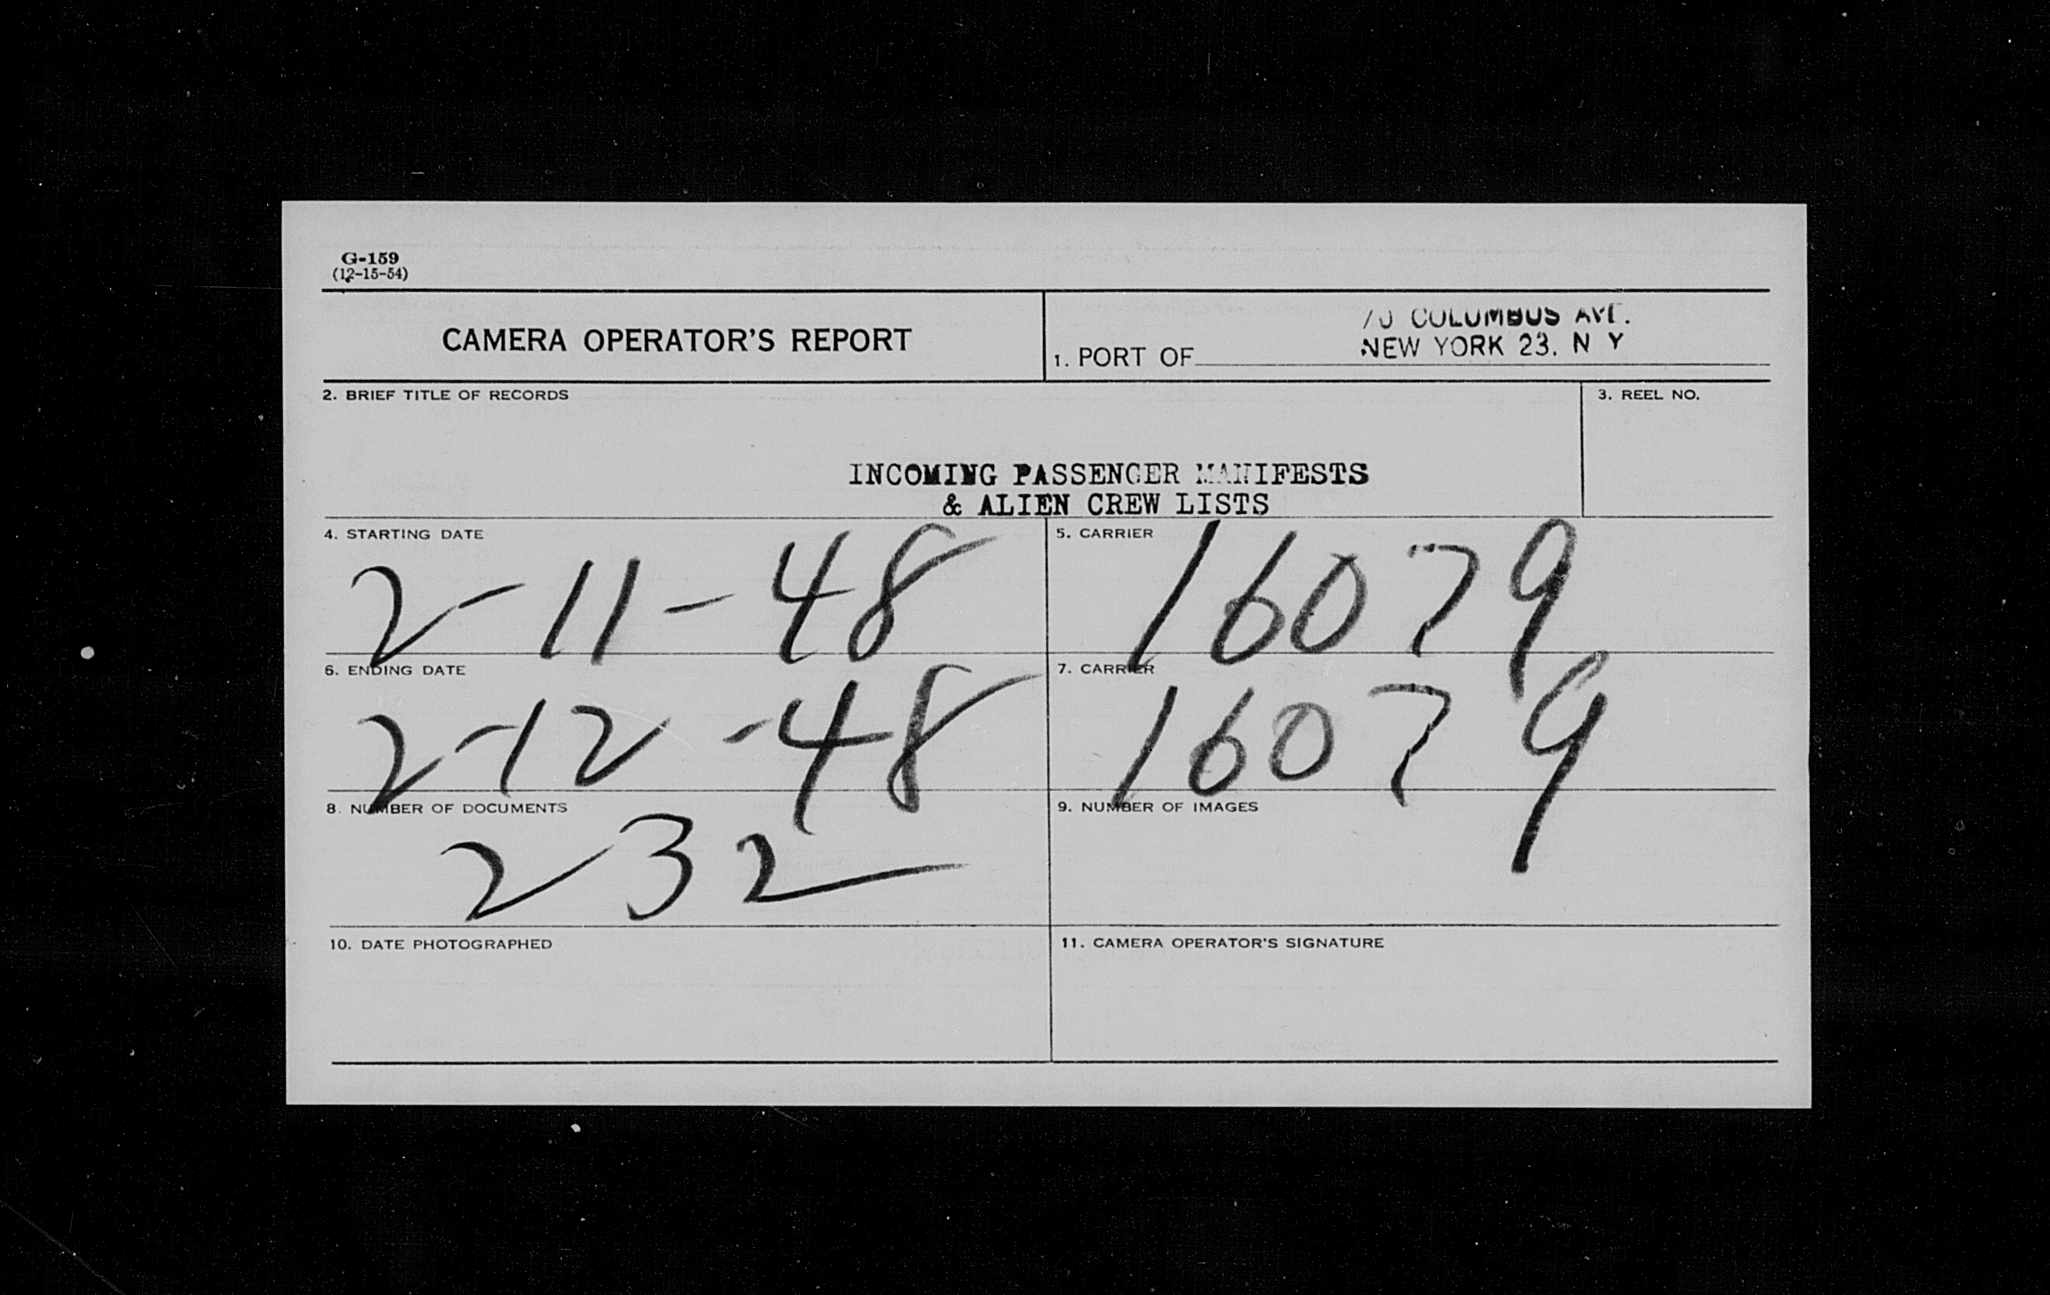 G-159
(12-15-54)
CAMERA OPERATOR'S REPORT
1. PORT OF
70 COLUMBUS AVE.
NEW YORK 23. N Y
2. BRIEF TITLE OF RECORDS
3. REEL NO.
INCOMING PASSENGER MANIFESTS
& ALIEN CREW LISTS
4. STARTING DATE
2-11-48
5. CARRIER
16079
6. ENDING DATE
2-12-48
7. CARRIER
16079
8. NUMBER OF DOCUMENTS
232
9. NUMBER OF IMAGES
10. DATE PHOTOGRAPHED
11. CAMERA OPERATOR'S SIGNATURE